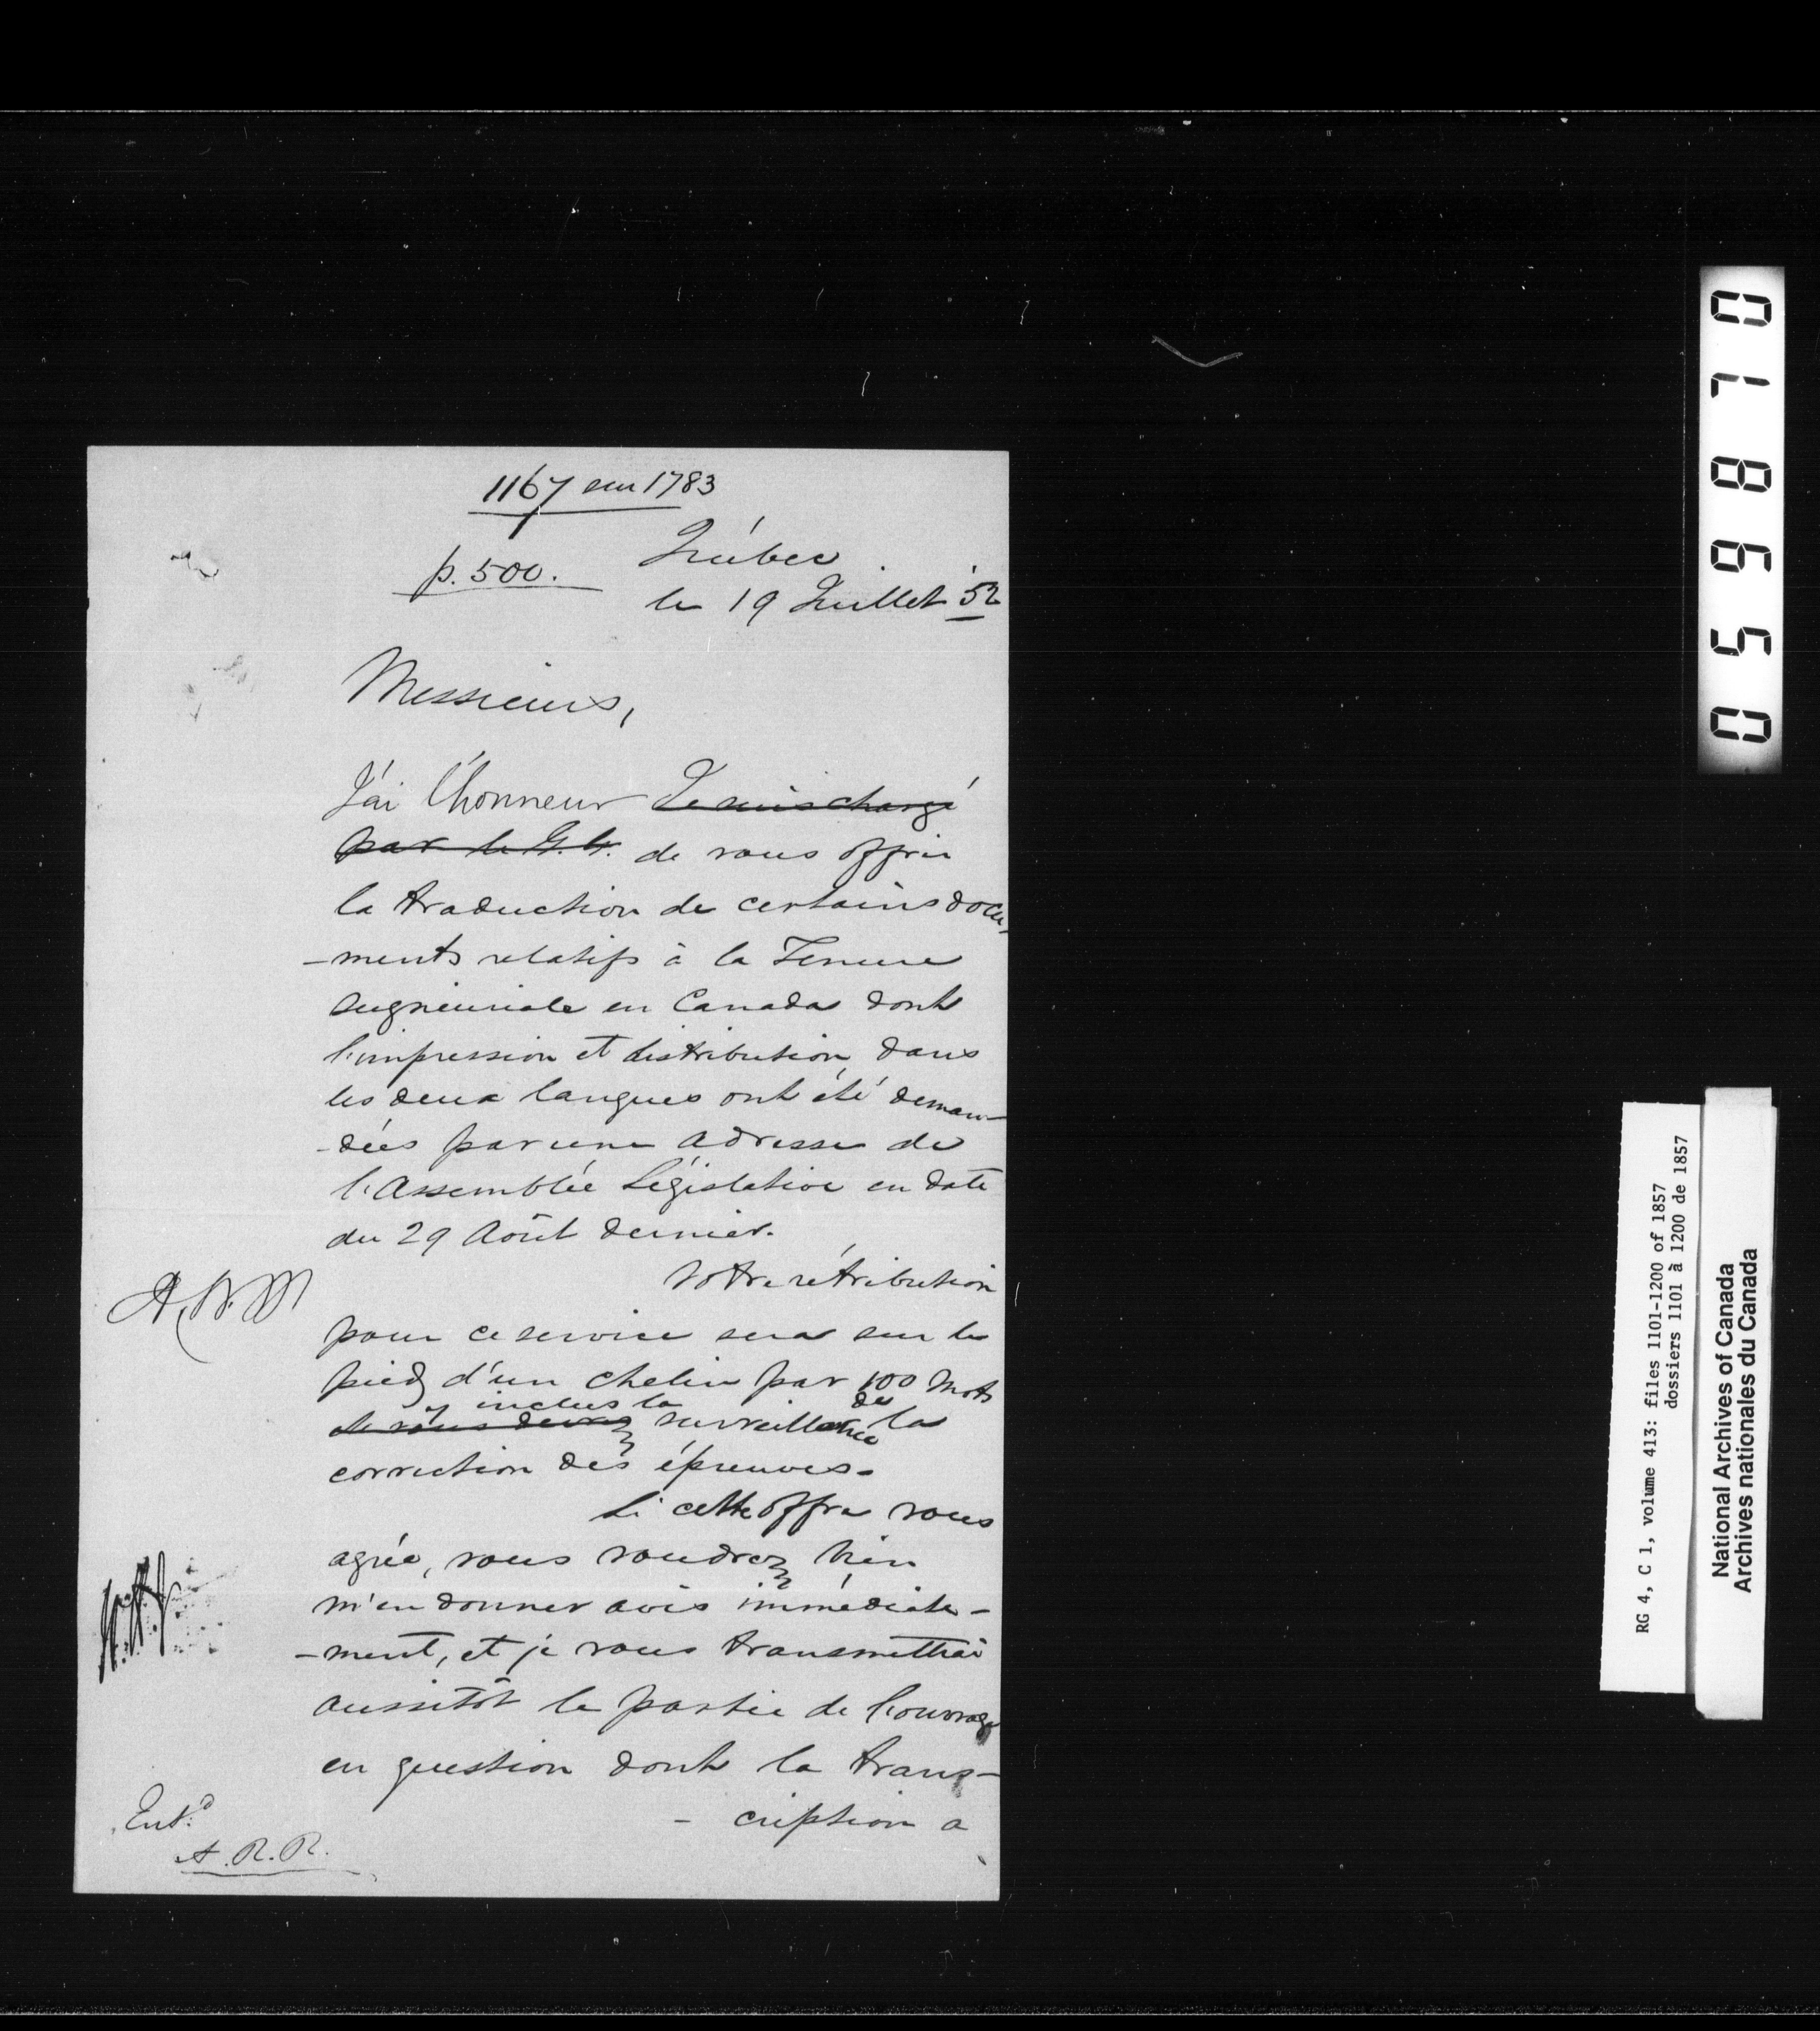 1167 sur 1783
p. 500.
Québec
le 19 Juillet '52
Messieurs,
J'ai l'honneur Je suis chargé
par le G. G. de vous offrir
la traduction de certains docu-
-ments relatifs à la Tenure
Seigneuriale en Canada dont
l'impression et distribution, dans
les deux langues ont été deman-
-dées par une adresse de
l'Assemblée Législative en date
du 29 Août dernier.
Votre rétribution
pour ce service sera sur le
pied d'un chelin par 100 Mots
y inclus la de
et vous devrez surveillance la
correction des épreuves.
Si cette offre vous
agrée, vous voudrez bien
m'en donner avis immédiate-
-ment, et je vous transmettrai
aussitôt la partie de l'ouvrage
en question dont la trans-
-cription a
Entd.
A.R.R.
059870
RG 4, C 1, volume 413: files 1101-1200 of 1857
dossiers 1101 à 1200 de 1857
National Archives of Canada
Archives nationales du Canada